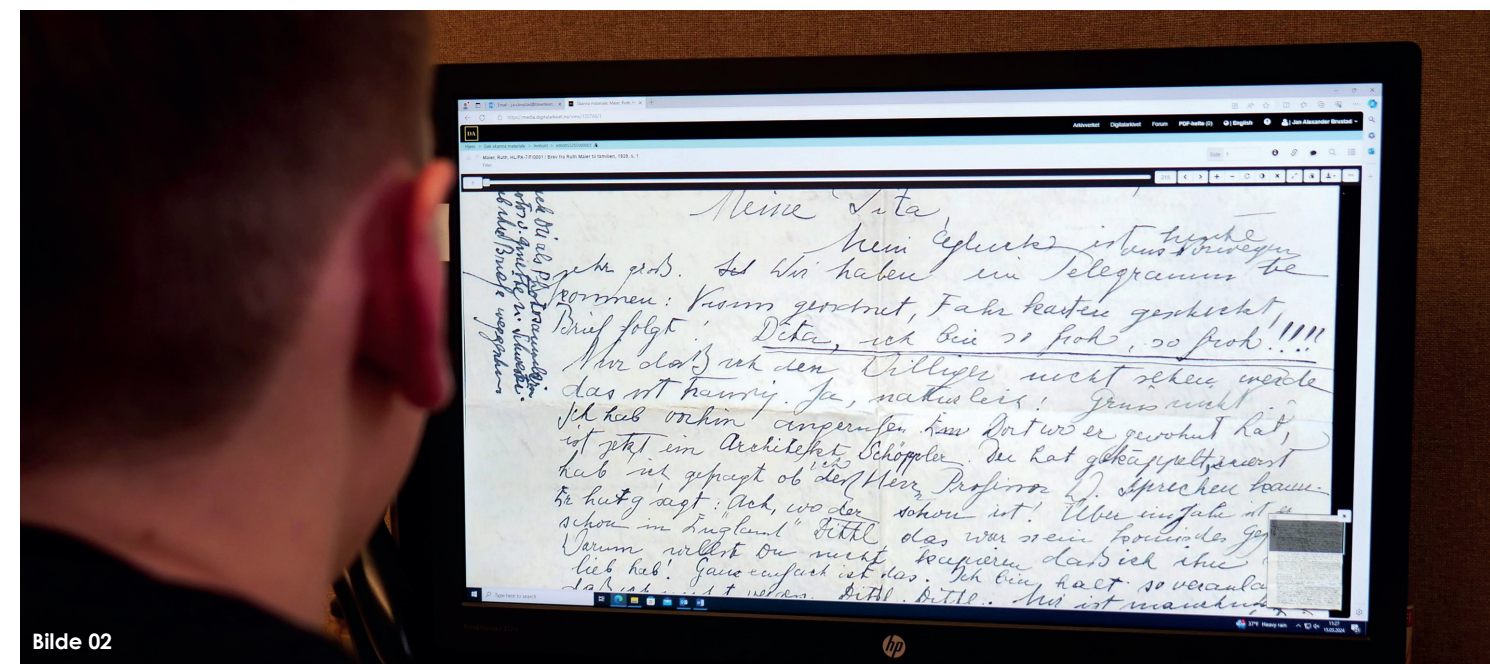 Email - jan.brustad@
https://media.digitalarkivet.no/view/
DA
Arkivverket Digitalarkivet Forum PDF-hefte (0) English Jan Alexander Brustad
Hjem > Søk i skanna materiale >
Maier, Ruth, HL/PA-7/F/0001 / Brev fra Ruth Maier til familien, 1939, s. 1
Side 1
Meine Dita,
Mein Glück ist heute
aus Norwegen
sehr groß. Wir haben ein Telegramm be
kommen: Visum geordnet, Fahrkarten geschickt,
Brief folgt!
Dita, ich bin so froh, so froh!!!!
Nur daß ich den Williger nicht sehen werde
das ist traurig. Ja, natürlich! Grins nicht
Ich hab vorhin angerufen. Dort wo er gewohnt hat,
ist jetzt ein Architekt Schöppler. Der hat gekäppelt, zuerst
hab ich gefragt ob ich den Herr Professor W. sprechen kann.
Er hat gsagt: "Ach, wo der schon ist! Über ein Jahr ist er
schon in England" Dittl das war so ein komisches
Warum willst Du nicht kapieren daß ich ihn
lieb hab! Ganz einfach ist das. Ich bin halt so veranla
Dittl. Dittl. Mir ist manchmal
ich Dir als Photosammlerin
Briefe weggeben
Type here to search
37°F Heavy rain
11:27
15.03.2024
hp
Bilde 02